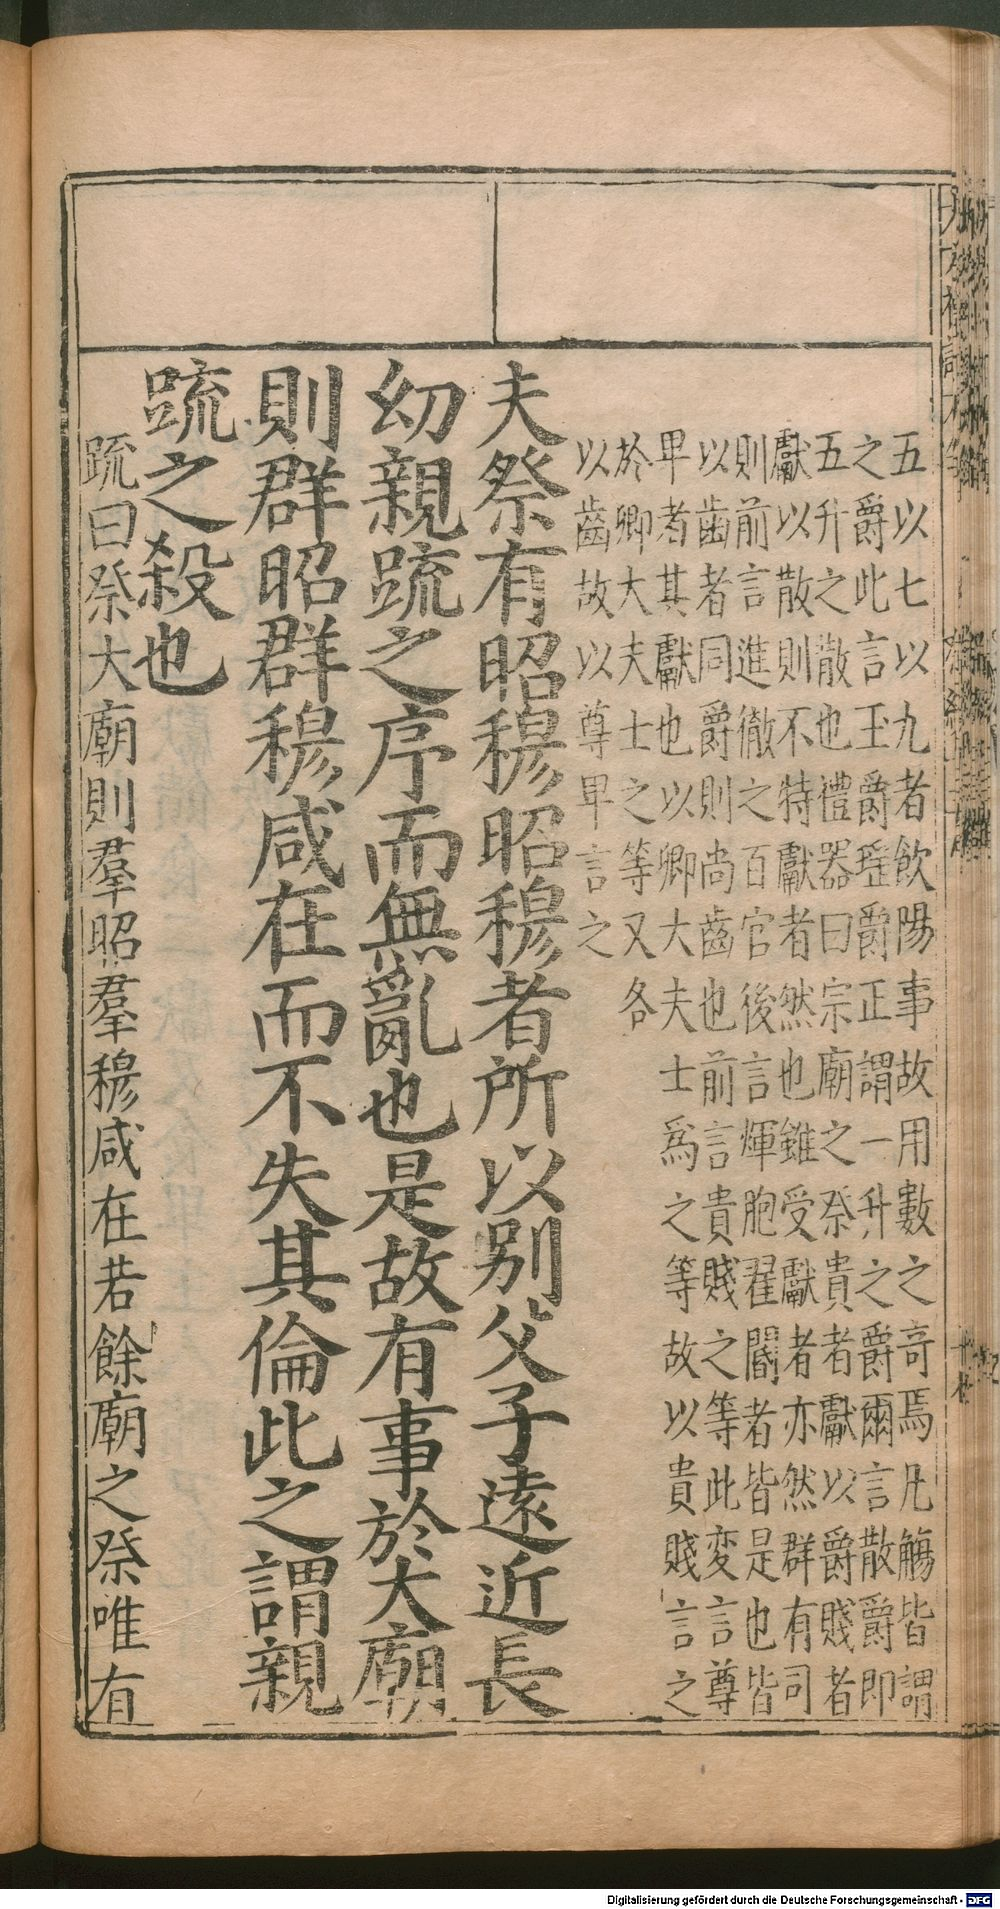 五以七以九者飲陽事故用數之奇焉凡觴皆謂
之爵此言玉爵瑤爵正謂一升之爵爾言散爵即
五升之散也禮器曰宗廟之祭貴者獻以爵賤者
獻以散則不特獻者然也雖受獻者亦然群有司
則前言進徹之百官後言煇胞翟閽者皆是也皆
以齒者同爵則尚齒也前言貴賤之等此变言尊
卑者其獻也以卿大夫士爲之等故以貴賤言之
於卿大夫士之等又各
以齒故以尊卑言之
夫祭有昭穆昭穆者所以別父子遠近長
幼親䟽之序而無亂也是故有事於大廟
則群昭群穆咸在而不失其倫此之謂親
䟽之殺也
䟽曰祭大廟則羣昭羣穆咸在若餘廟之祭唯有
Digitalisierung gefördert durch die Deutsche Forschungsgemeinschaft - DFG